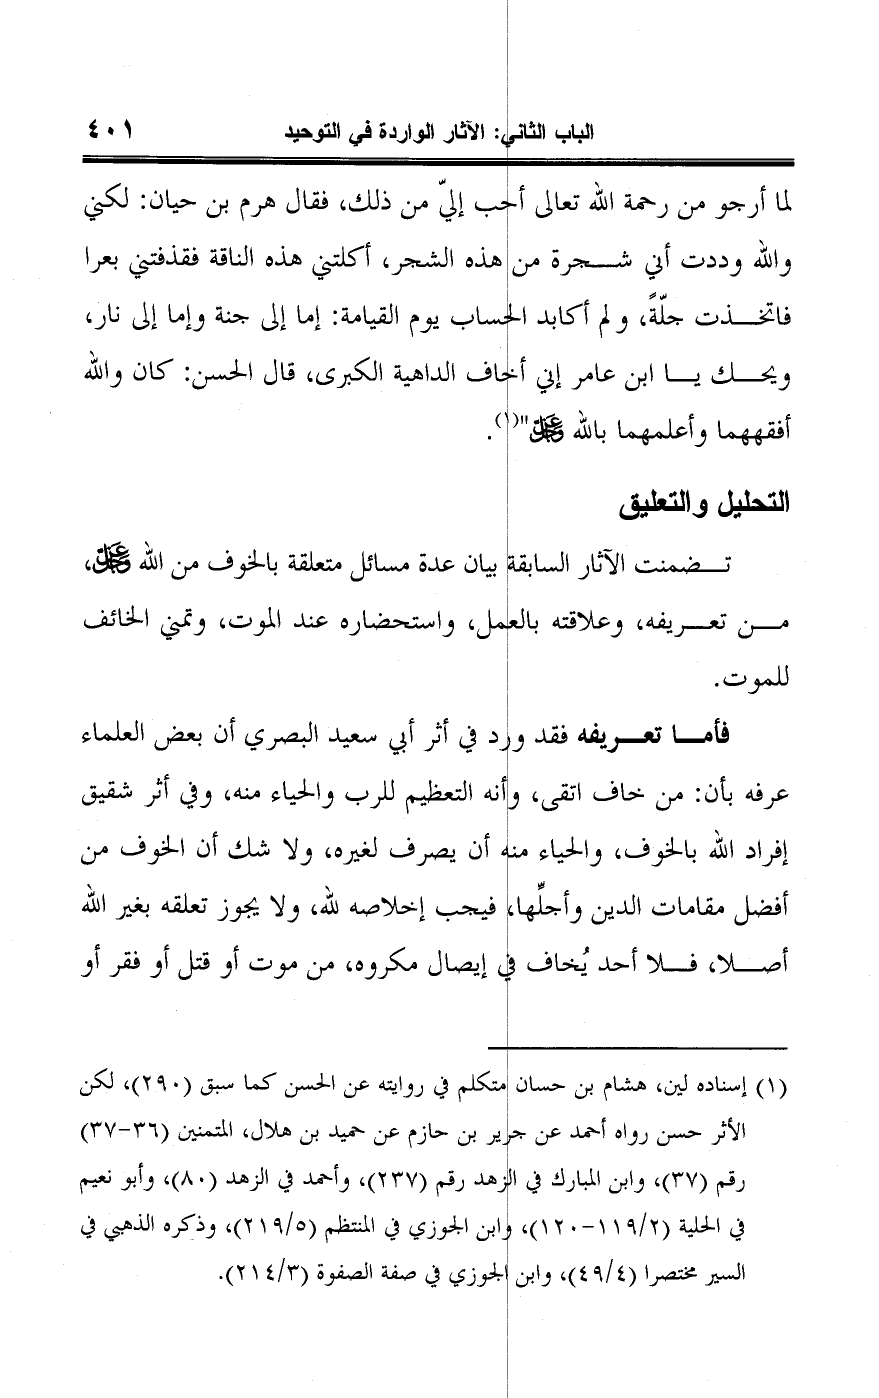 الباب الثاني: الآثار الواردة في التوحيد ٤٠١
لما أرجو من رحمة الله تعالى أحب إليّ من ذلك، فقال هرم بن حيان: لكني
والله وددت أني شجرة من هذه الشجر، أكلتني هذه الناقة فقذفتني بعرا
فاتخذت جلّةً، ولم أكابد الحساب يوم القيامة: إما إلى جنة وإما إلى نار،
ويحك يا ابن عامر إني أخاف الداهية الكبرى، قال الحسن: كان والله
أفقههما وأعلمهما بالله عز وجل"(١).
التحليل والتعليق
تضمنت الآثار السابقة بيان عدة مسائل متعلقة بالخوف من الله عز وجل،
من تعريفه، وعلاقته بالعمل، واستحضاره عند الموت، وتمني الخائف
للموت.
فأما تعريفه فقد ورد في أثر أبي سعيد البصري أن بعض العلماء
عرفه بأن: من خاف اتقى، وأنه التعظيم للرب والحياء منه، وفي أثر شقيق
إفراد الله بالخوف، والحياء منه أن يصرف لغيره، ولا شك أن الخوف من
أفضل مقامات الدين وأجلِّها، فيجب إخلاصه لله، ولا يجوز تعلقه بغير الله
أصلا، فلا أحد يُخاف في إيصال مكروه، من موت أو قتل أو فقر أو
(١) إسناده لين، هشام بن حسان متكلم في روايته عن الحسن كما سبق (٢٩٠)، لكن
الأثر حسن رواه أحمد عن جرير بن حازم عن حميد بن هلال، المتمنين (٣٦-٣٧)
رقم (٣٧)، وابن المبارك في الزهد رقم (٢٣٧)، وأحمد في الزهد (٨٠)، وأبو نعيم
في الحلية (١١٩/٢-١٢٠)، وابن الجوزي في المنتظم (٢١٩/٥)، وذكره الذهبي في
السير مختصرا (٤٩/٤)، وابن الجوزي في صفة الصفوة (٢١٤/٣).